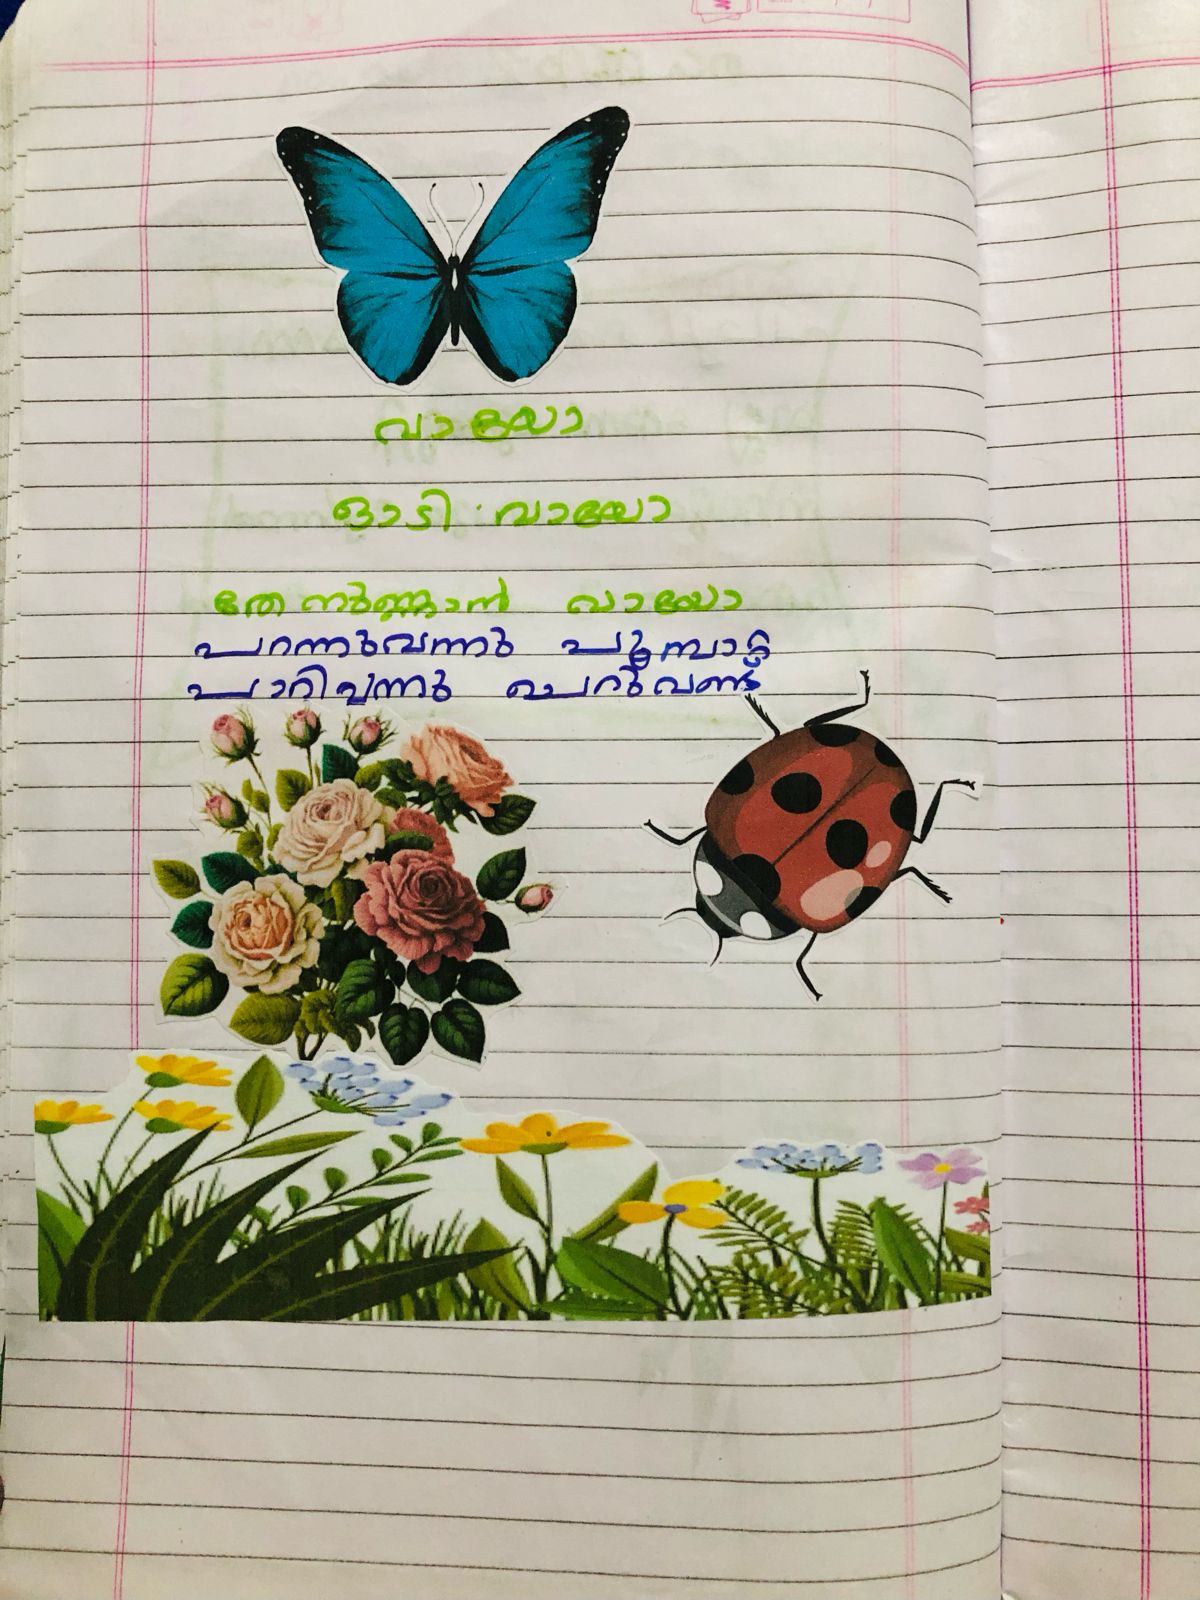 വായോ
ഓടി വായോ
തേനുണ്ണാൻ വായോ
പറന്നുവന്നു പൂമ്പാറ്റ
പാറിവന്നു ചെറുവണ്ട്